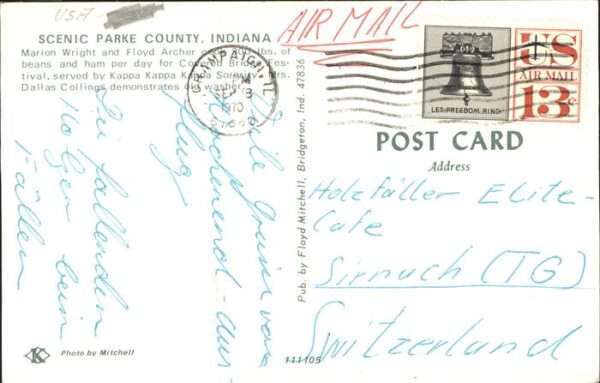 USA
AIR MAIL
SCENIC PARKE COUNTY, INDIANA
Marion Wright and Floyd Archer lbs. of
beans and ham per day for Covered Bridge Fes-
tival, served by Kappa Kappa Kappa Sorority. Mrs.
Dallas Collings demonstrates old washer.
CHAMPAIGN, IL
SEP
1970
LET FREEDOM RING
US
AIR MAIL
13c
POST CARD
Address
Holzfäller Elite-
Cafe
Sirnach (TG)
Switzerland
Viele Grüsse vom
Wochenend-Aus-
flug
Die fallenden
Holzer beim
Fällen
Pub. by Floyd Mitchell, Bridgeton, Ind. 47836
K
Photo by Mitchell
111105